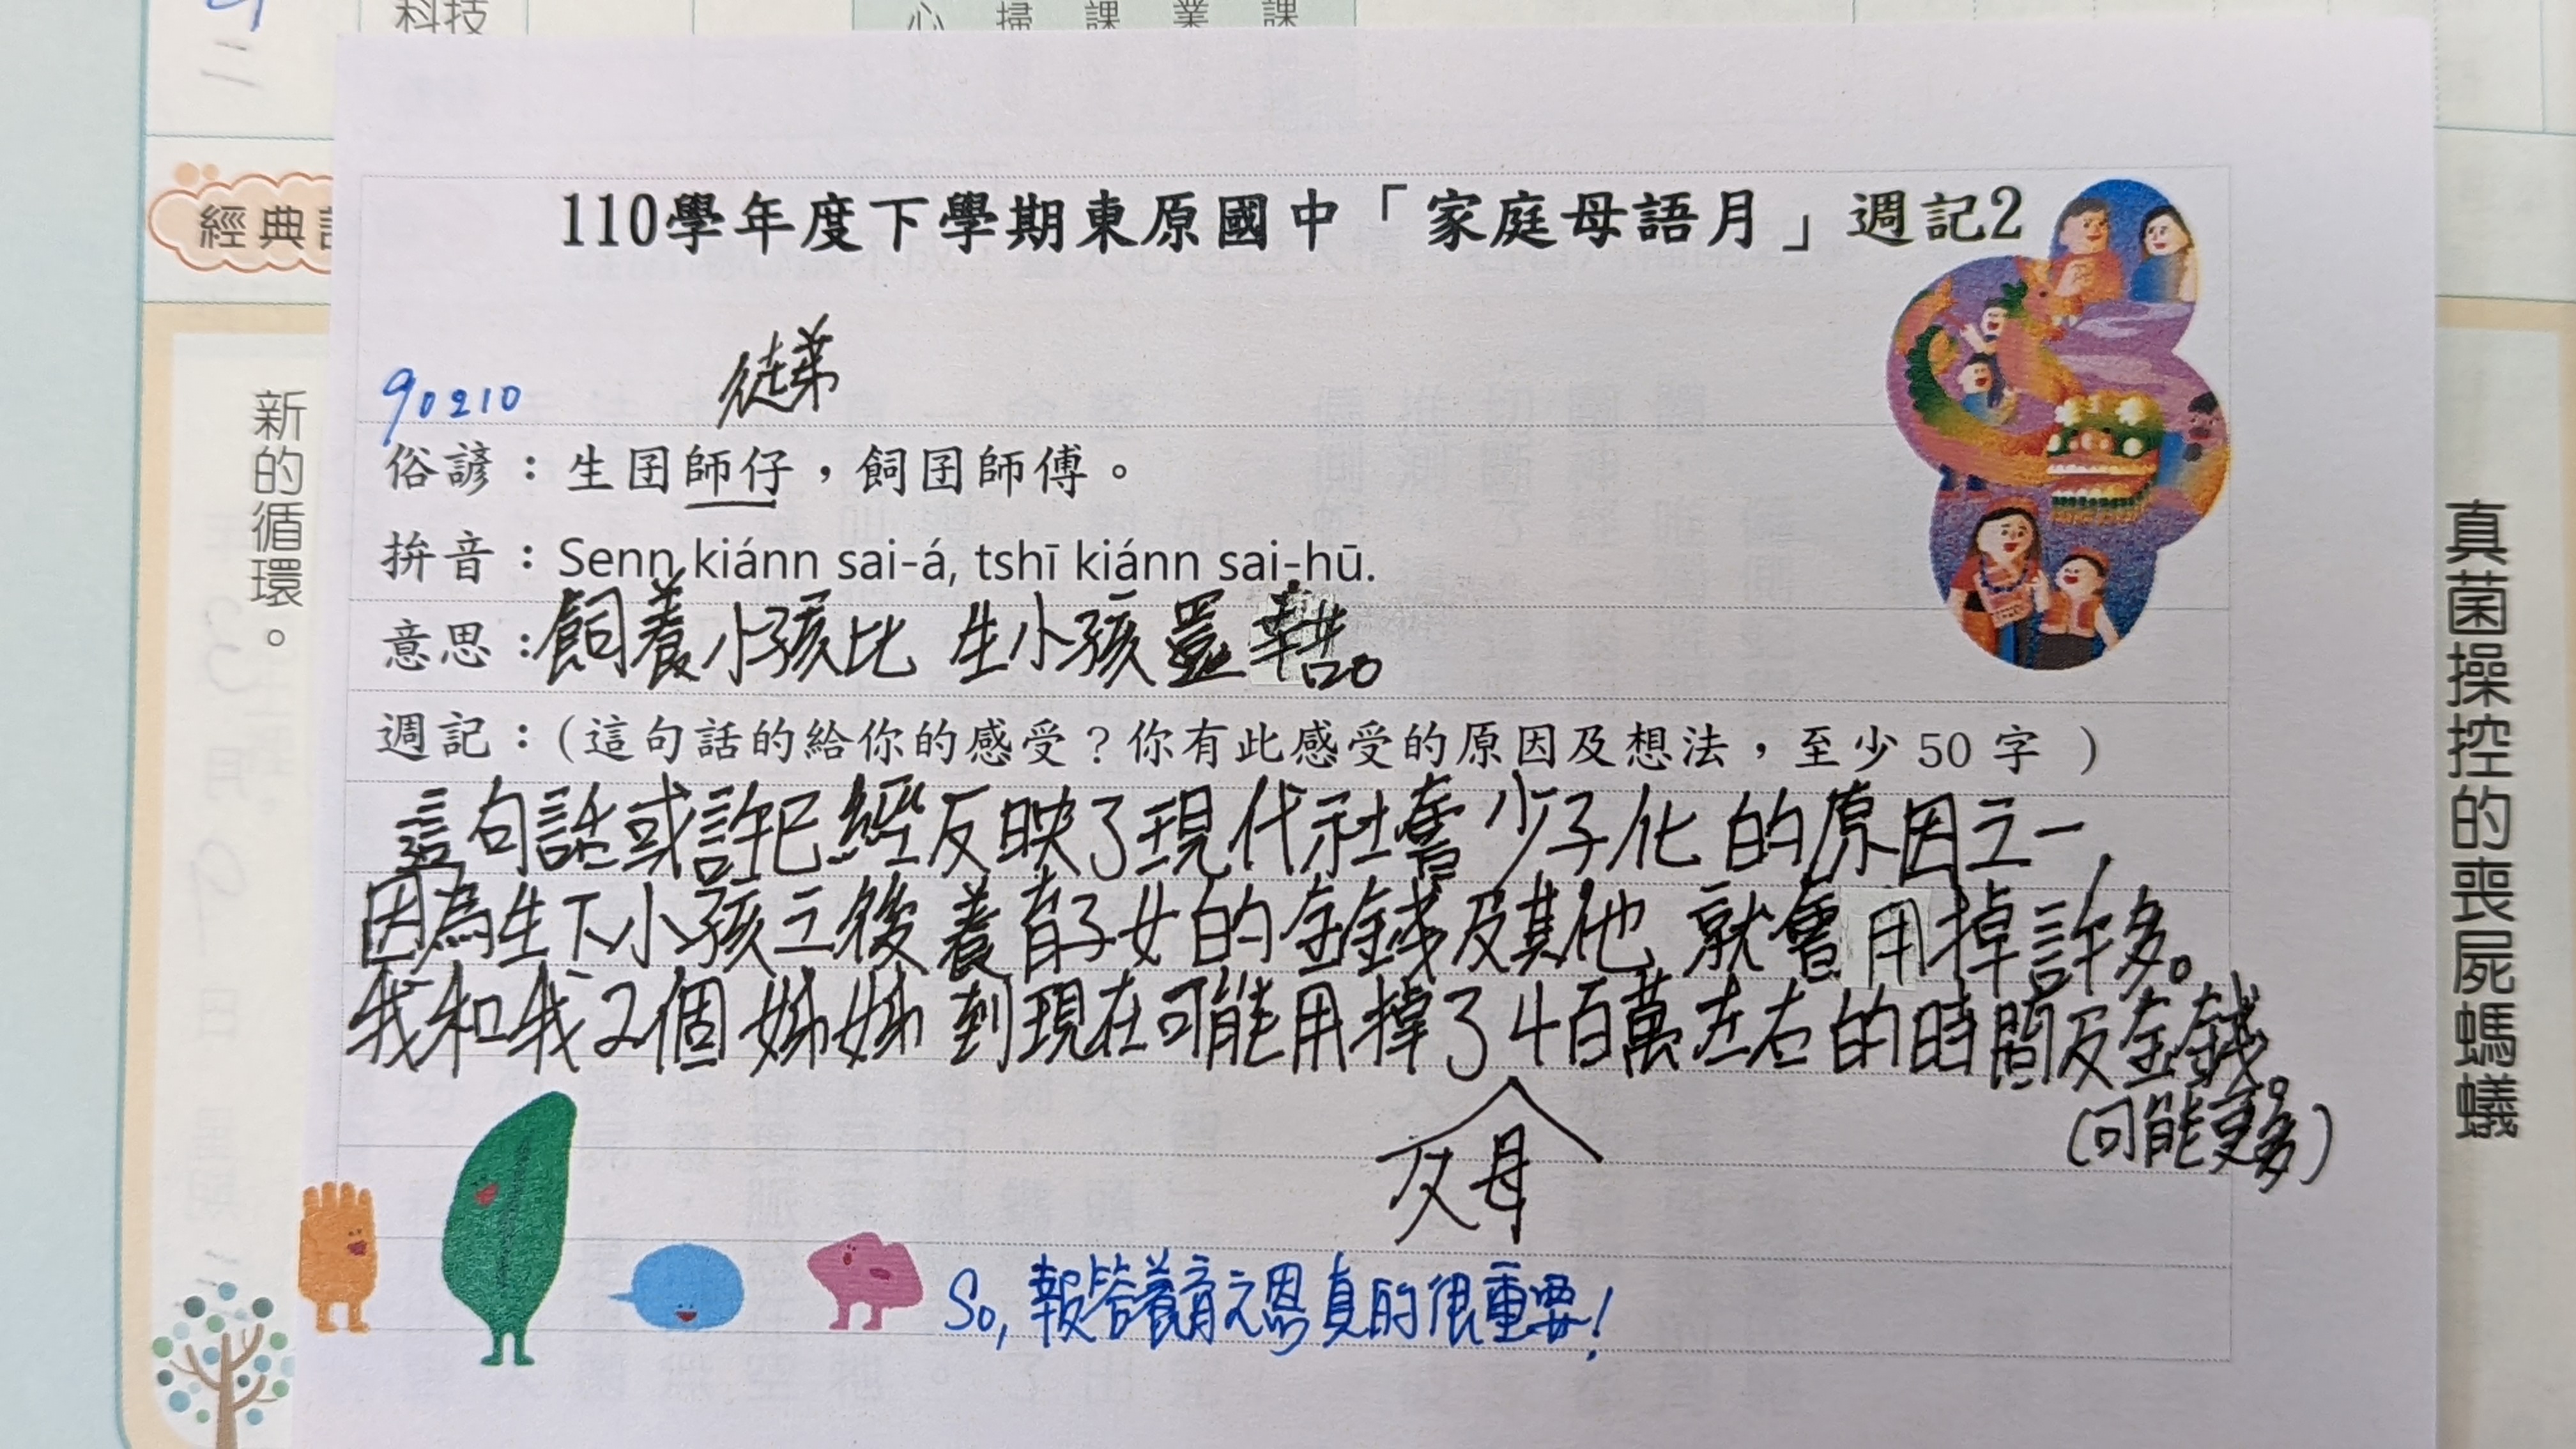 科技
心 掃 課 業 課
經典
110學年度下學期東原國中「家庭母語月」週記2
90210
徒弟
俗諺：生囝師仔，飼囝師傅。
拚音：Senn kiánn sai-á, tshī kiánn sai-hū.
意思：飼養小孩比 生小孩還辛苦。
週記：(這句話的給你的感受？你有此感受的原因及想法，至少50字 )
這句話或許已經反映了現代社會少子化的原因之一，
因為生下小孩之後養育子女的金錢及其他，就會用掉許多。
我和我2個姊姊到現在可能用掉了4百萬左右的時間及金錢。
(可能更多)
父母
So, 報答養育之恩真的很重要!
新的循環。
真菌操控的喪屍螞蟻